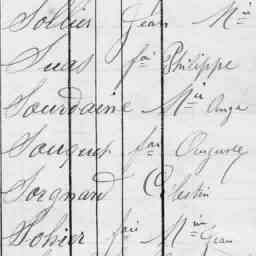 Sollier Jean Mie
Suas fois Philippe
Sourdaine Mie Ange
Souquet fois Auguste
Sorgnard Célestin
Sohier fois Mie Jean